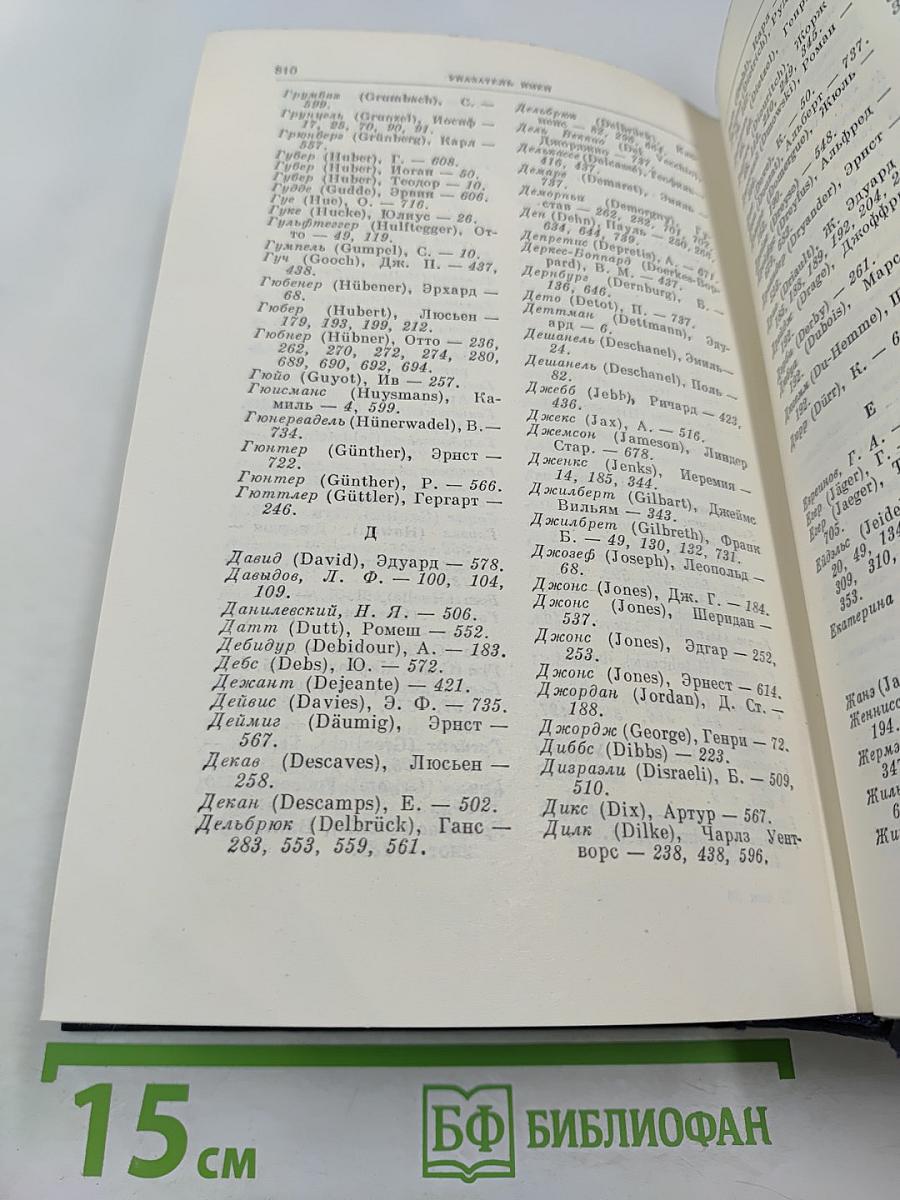 810
УКАЗАТЕЛЬ ИМЕН
Грумбах (Grumbach), С. —
599.
Грунцель (Grunzel), Иосиф —
17, 25, 70, 90, 91.
Грюнберг (Grünberg), Карл —
557.
Губер (Huber), Г. — 608.
Губер (Huber), Иоган — 50.
Губер (Huber), Теодор — 10.
Гудде (Gudde), Эрвин — 606.
Гуе (Hue), О. — 716.
Гуке (Hucke), Юлиус — 26.
Гульфтеггер (Hulftegger), От-
то — 49, 119.
Гумпель (Gumpel), С. — 10.
Гуч (Gooch), Дж. П. — 437,
438.
Гюбенер (Hübener), Эрхард —
68.
Гюбер (Hubert), Люсьен —
179, 193, 199, 212.
Гюбнер (Hübner), Отто — 236,
262, 270, 272, 274, 280,
689, 690, 692, 694.
Гюйо (Guyot), Ив — 257.
Гюисманс (Huysmans), Ка-
миль — 4, 599.
Гюнервадель (Hünerwadel), В. —
734.
Гюнтер (Günther), Эрнст —
722.
Гюнтер (Günther), Р. — 566.
Гюттлер (Güttler), Гергарт —
246.
Д
Давид (David), Эдуард — 578.
Давыдов, Л. Ф. — 100, 104,
109.
Данилевский, Н. Я. — 506.
Датт (Dutt), Ромеш — 552.
Дебидур (Debidour), А. — 183.
Дебс (Debs), Ю. — 572.
Дежант (Dejeante) — 421.
Дейвис (Davies), Э. Ф. — 735.
Деймиг (Däumig), Эрнст —
567.
Декав (Descaves), Люсьен —
258.
Декан (Descamps), Е. — 502.
Дельбрюк (Delbrück), Ганс —
283, 553, 559, 561.
Дельбрюк (Delbrück),
Дель Веккио (Del Vecchio),
Джорджио — 737.
Делькассе (Delcassé), Теофиль —
416, 437.
Демаре (Demaret), Эмиль —
737.
Деморньи (Demorgny), Гу-
став — 262, 282, 701, 702.
Ден (Dehn), Пауль — 250, 266,
634, 644, 739.
Депретис (Depretis), А. — 671.
Деркес-Боппард (Doerkes-Bop-
pard), В. М. — 437.
Дернбург (Dernburg), В. —
136, 646.
Дето (Detot), П. — 737.
Деттман (Dettmann), Эду-
ард — 6.
Дешанель (Deschanel), Эмиль —
24.
Дешанель (Deschanel), Поль —
82.
Джебб (Jebb), Ричард — 423,
436.
Джекс (Jax), А. — 516.
Джемсон (Jameson), Линдер
Стар. — 678.
Дженкс (Jenks), Иеремия —
14, 185, 344.
Джилберт (Gilbart), Джеймс
Вильям — 343.
Джилбрет (Gilbreth), Франк
Б. — 49, 130, 132, 731.
Джозеф (Joseph), Леопольд —
68.
Джонс (Jones), Дж. Г. — 184.
Джонс (Jones), Шеридан —
537.
Джонс (Jones), Эдгар — 252,
253.
Джонс (Jones), Эрнест — 614.
Джордан (Jordan), Д. Ст. —
188.
Джордж (George), Генри — 72.
Диббс (Dibbs) — 223.
Дизраэли (Disraeli), Б. — 509,
510.
Дикс (Dix), Артур — 567.
Дилк (Dilke), Чарлз Уент-
ворс — 238, 438, 596.
Карл
Жорж
Роман —
50. — 737.
Альберт —
Жюль —
548.
(Dreyfus), Альфред —
(Dryander), Эрнст —
(Driault), Ж. Эдуард
138, 139, 192, 204,
(Drage), Джоффри
192.
(Derby) — 261.
(Dubois), Марс
192.
(Du-Hemme), П
192.
Дюрр (Dürr), К. — 6
Е
Евреинов, Г. А. —
Егер (Jäger), Г. —
Егер (Jaeger), Т
705.
Ейдэльс (Jeidel
20, 49, 134
309, 310,
353.
Екатерина
Жанэ (Ja
Женнисс
194.
Жермэ
347
Жиль
6
Жи
15 см
БФ БИБЛИОФАН